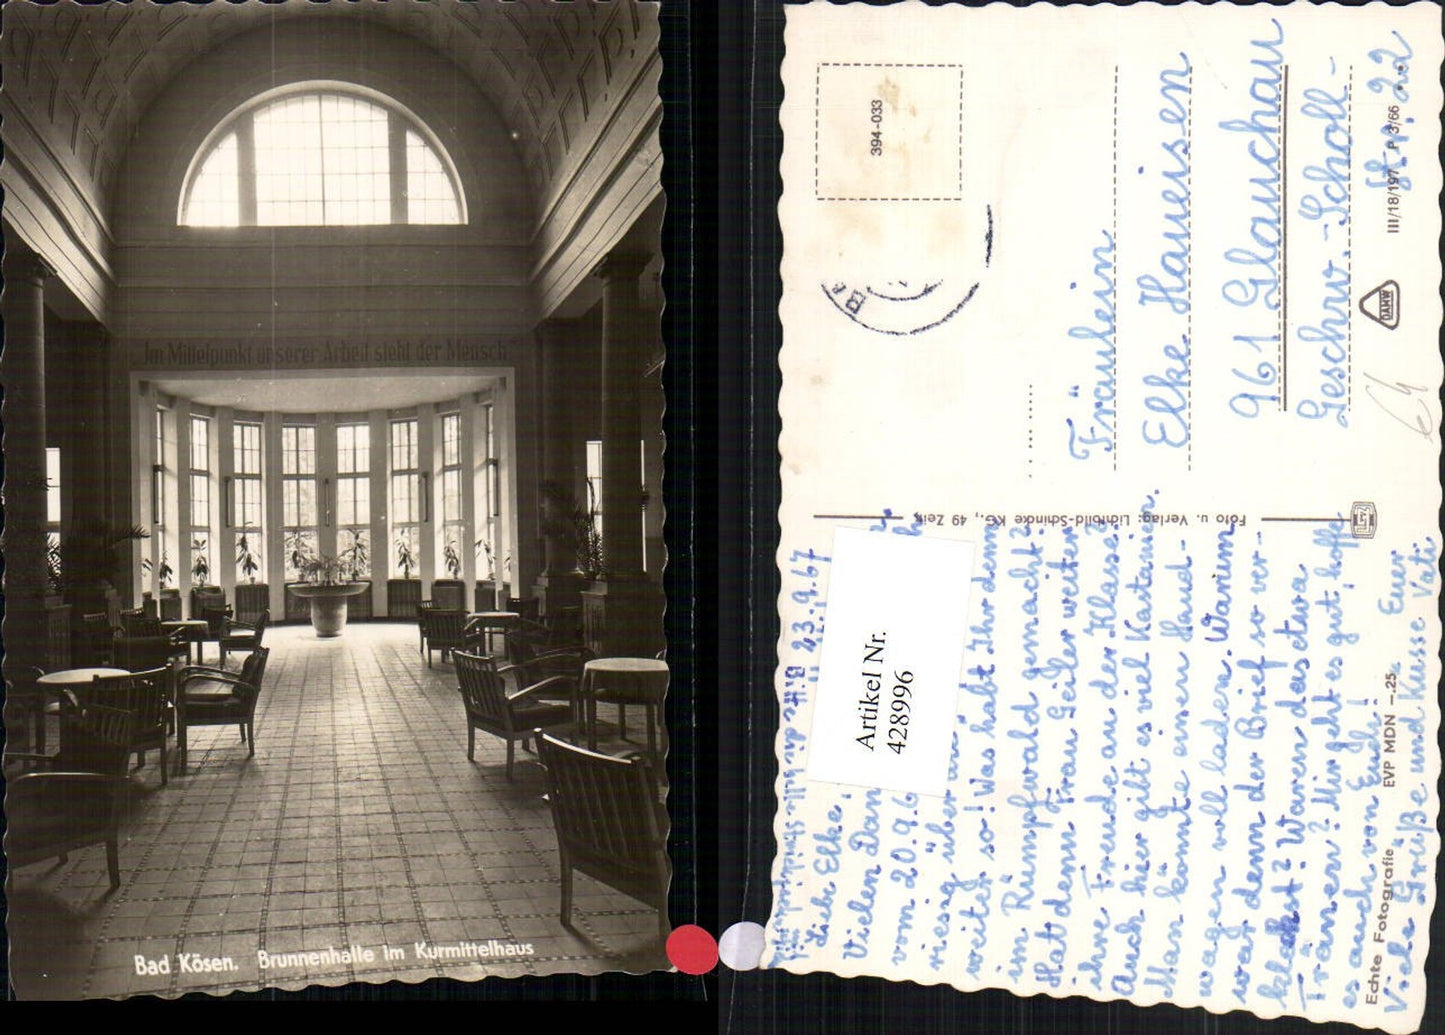 „Im Mittelpunkt unserer Arbeit steht der Mensch"
Bad Kösen. Brunnenhalle im Kurmittelhaus
394-033
Fräulein
Elke Haueisen
961 Glauchau
Geschw.-Scholl-
Str. 22
III/18/197 P 3/66
DAMW
Foto u. Verlag: Lichtbild-Schincke KG., 49 Zeitz
Artikel Nr.
428996
23.9.67
Liebe Elke,
Vielen Dan
vom 20.9.6
riesig über
weiter so! Was habt Ihr denn
im Rümpfwald gemacht?
Hat denn Frau Geiler weiter
ihre Freude an der Klasse?
Auch hier gibt es viel Kastanien.
Man könnte einen Hand-
wagen voll laden. Warum
war denn der Brief so ver-
kleckst? Waren das etwa
Tränen? Mir geht es gut, hoffe
es auch von Euch!
Viele Grüße und Küsse Euer
Vati
Echte Fotografie EVP MDN -.25